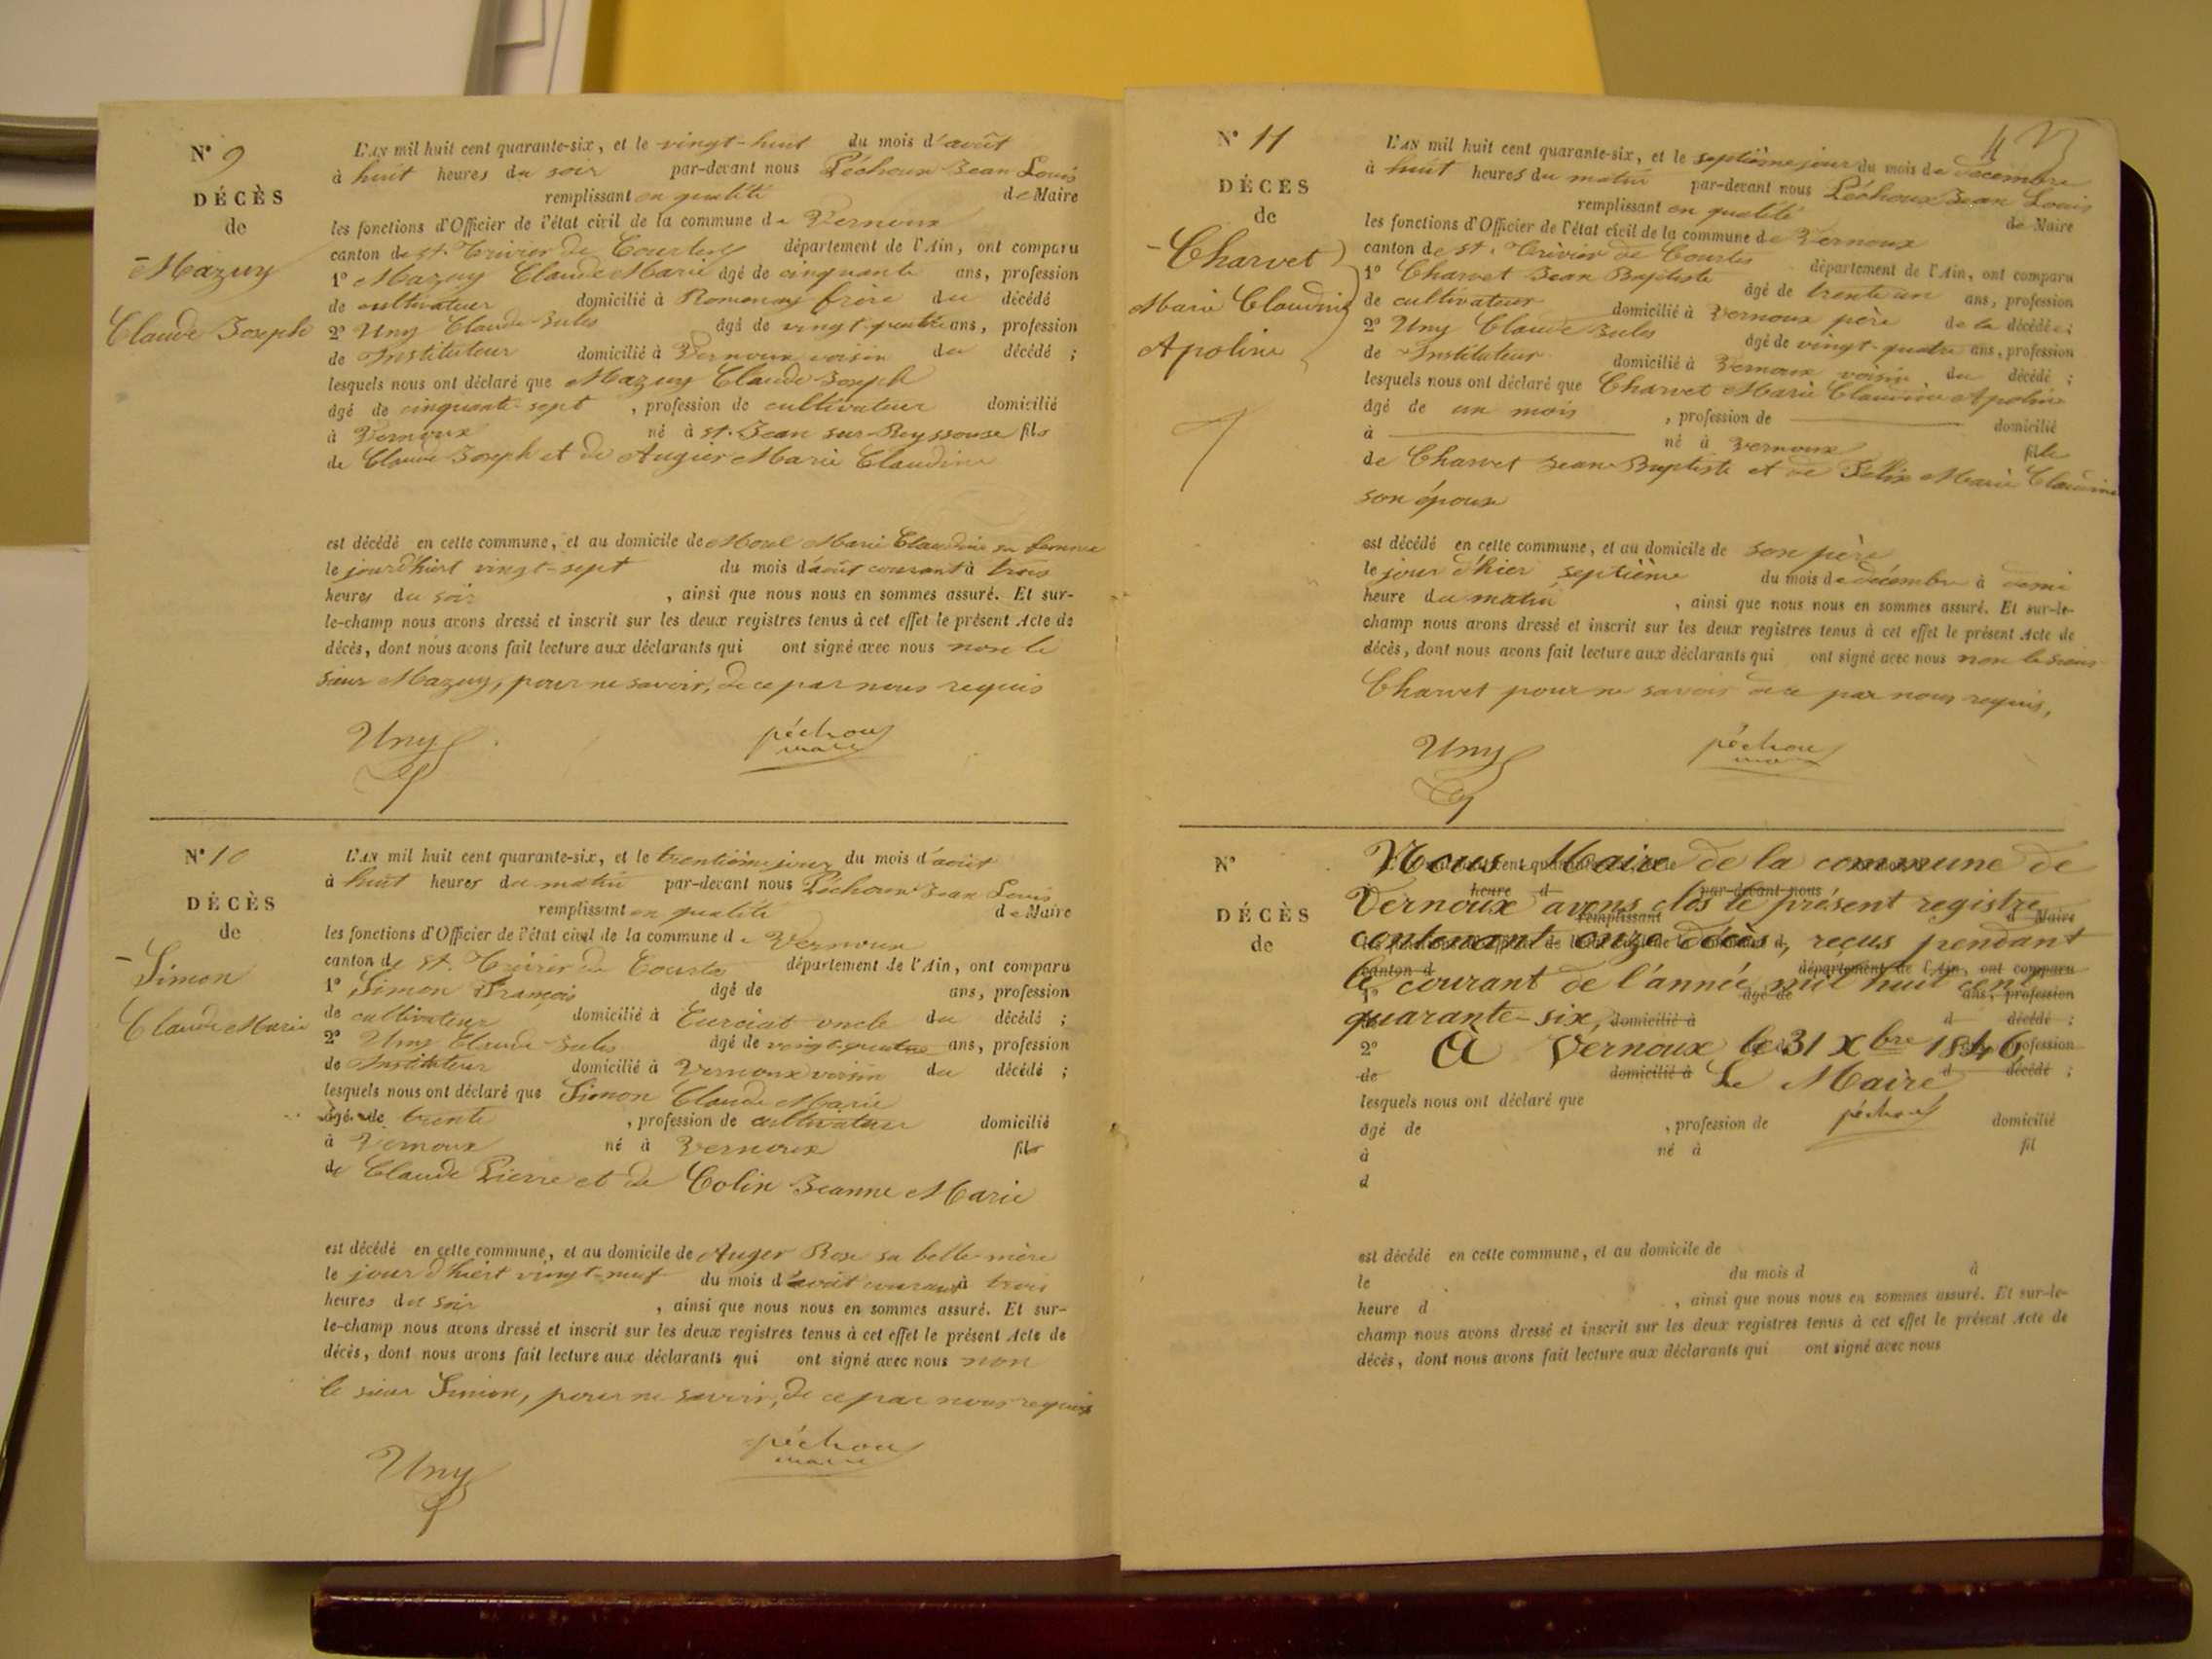 N° 9
DÉCÈS
de
Mazuy
Claude Joseph
L'AN mil huit cent quarante-six, et le vingt-huit du mois d'août
à huit heures du soir par-devant nous Péchoux Jean Louis
remplissant en qualité de Maire
les fonctions d'Officier de l'état civil de la commune de Vernoux
canton de St. Trivier de Courtes département de l'Ain, ont comparu
1° Mazuy Claude Marie âgé de cinquante ans, profession
de cultivateur domicilié à Romenay frère du décédé
2° Uny Claude Jules âgé de vingt-quatre ans, profession
de Instituteur domicilié à Vernoux voisin du décédé ;
lesquels nous ont déclaré que Mazuy Claude Joseph
âgé de cinquante-sept , profession de cultivateur domicilié
à Vernoux né à St. Jean sur Reyssouze fils
de Claude Joseph et de Augier Marie Claudine
est décédé en cette commune, et au domicile de Morel Marie Claudine sa femme
le jour d'hiert vingt-sept du mois d'août courant à trois
heures du soir , ainsi que nous nous en sommes assuré. Et sur-
le-champ nous avons dressé et inscrit sur les deux registres tenus à cet effet le présent Acte de
décès, dont nous avons fait lecture aux déclarants qui ont signé avec nous non le
sieur Mazuy, pour ne savoir, de ce par nous requis
Uny péchoux
maire
N° 10
DÉCÈS
de
Simon
Claude Marie
L'AN mil huit cent quarante-six, et le trentième jour du mois d'août
à huit heures du matin par-devant nous Péchoux Jean Louis
remplissant en qualité de Maire
les fonctions d'Officier de l'état civil de la commune de Vernoux
canton de St. Trivier de Courtes département de l'Ain, ont comparu
1° Simon François âgé de ans, profession
de cultivateur domicilié à Curciat oncle du décédé ;
2° Uny Claude Jules âgé de vingt-quatre ans, profession
de Instituteur domicilié à Vernoux voisin du décédé ;
lesquels nous ont déclaré que Simon Claude Marie
âgé de trente , profession de cultivateur domicilié
à Vernoux né à Vernoux fils
de Claude Pierre et de Colin Jeanne Marie
est décédé en cette commune, et au domicile de Auger Rose sa belle-mère
le jour d'hiert vingt-neuf du mois d'août courant à trois
heures du soir , ainsi que nous nous en sommes assuré. Et sur-
le-champ nous avons dressé et inscrit sur les deux registres tenus à cet effet le présent Acte de
décès, dont nous avons fait lecture aux déclarants qui ont signé avec nous non
le sieur Simon, pour ne savoir, de ce par nous requis
Uny péchoux
maire
N° 11
DÉCÈS
de
Charvet
Marie Claudine
Apoline
L'AN mil huit cent quarante-six, et le septième jour du mois de décembre
à huit heures du matin par-devant nous Péchoux Jean Louis
remplissant en qualité de Maire
les fonctions d'Officier de l'état civil de la commune de Vernoux
canton de St. Trivier de Courtes département de l'Ain, ont comparu
1° Charvet Jean Baptiste âgé de trente un ans, profession
de cultivateur domicilié à Vernoux père de la décédée ;
2° Uny Claude Jules âgé de vingt-quatre ans, profession
de Instituteur domicilié à Vernoux voisin du décédé ;
lesquels nous ont déclaré que Charvet Marie Claudine Apoline
âgé de un mois , profession de domicilié
à né à Vernoux fille
de Charvet Jean Baptiste et de Félix Marie Claudine
son épouse
est décédé en cette commune, et au domicile de son père
le jour d'hier septième du mois de décembre à demi
heure du matin , ainsi que nous nous en sommes assuré. Et sur-le-
champ nous avons dressé et inscrit sur les deux registres tenus à cet effet le présent Acte de
décès, dont nous avons fait lecture aux déclarants qui ont signé avec nous non le sieur
Charvet pour ne savoir de ce par nous requis,
Uny péchoux
N°
DÉCÈS
de
Nous Maire de la commune de
Vernoux avons clos le présent registre
contenant onze décès, reçus pendant
le courant de l'année mil huit cent
quarante-six,
À Vernoux le 31 Xbre 1846
Le Maire
péchoux
lesquels nous ont déclaré que
âgé de , profession de domicilié
à né à fil
d
est décédé en cette commune, et au domicile de
le du mois d à
heure d , ainsi que nous nous en sommes assuré. Et sur-le-
champ nous avons dressé et inscrit sur les deux registres tenus à cet effet le présent Acte de
décès, dont nous avons fait lecture aux déclarants qui ont signé avec nous